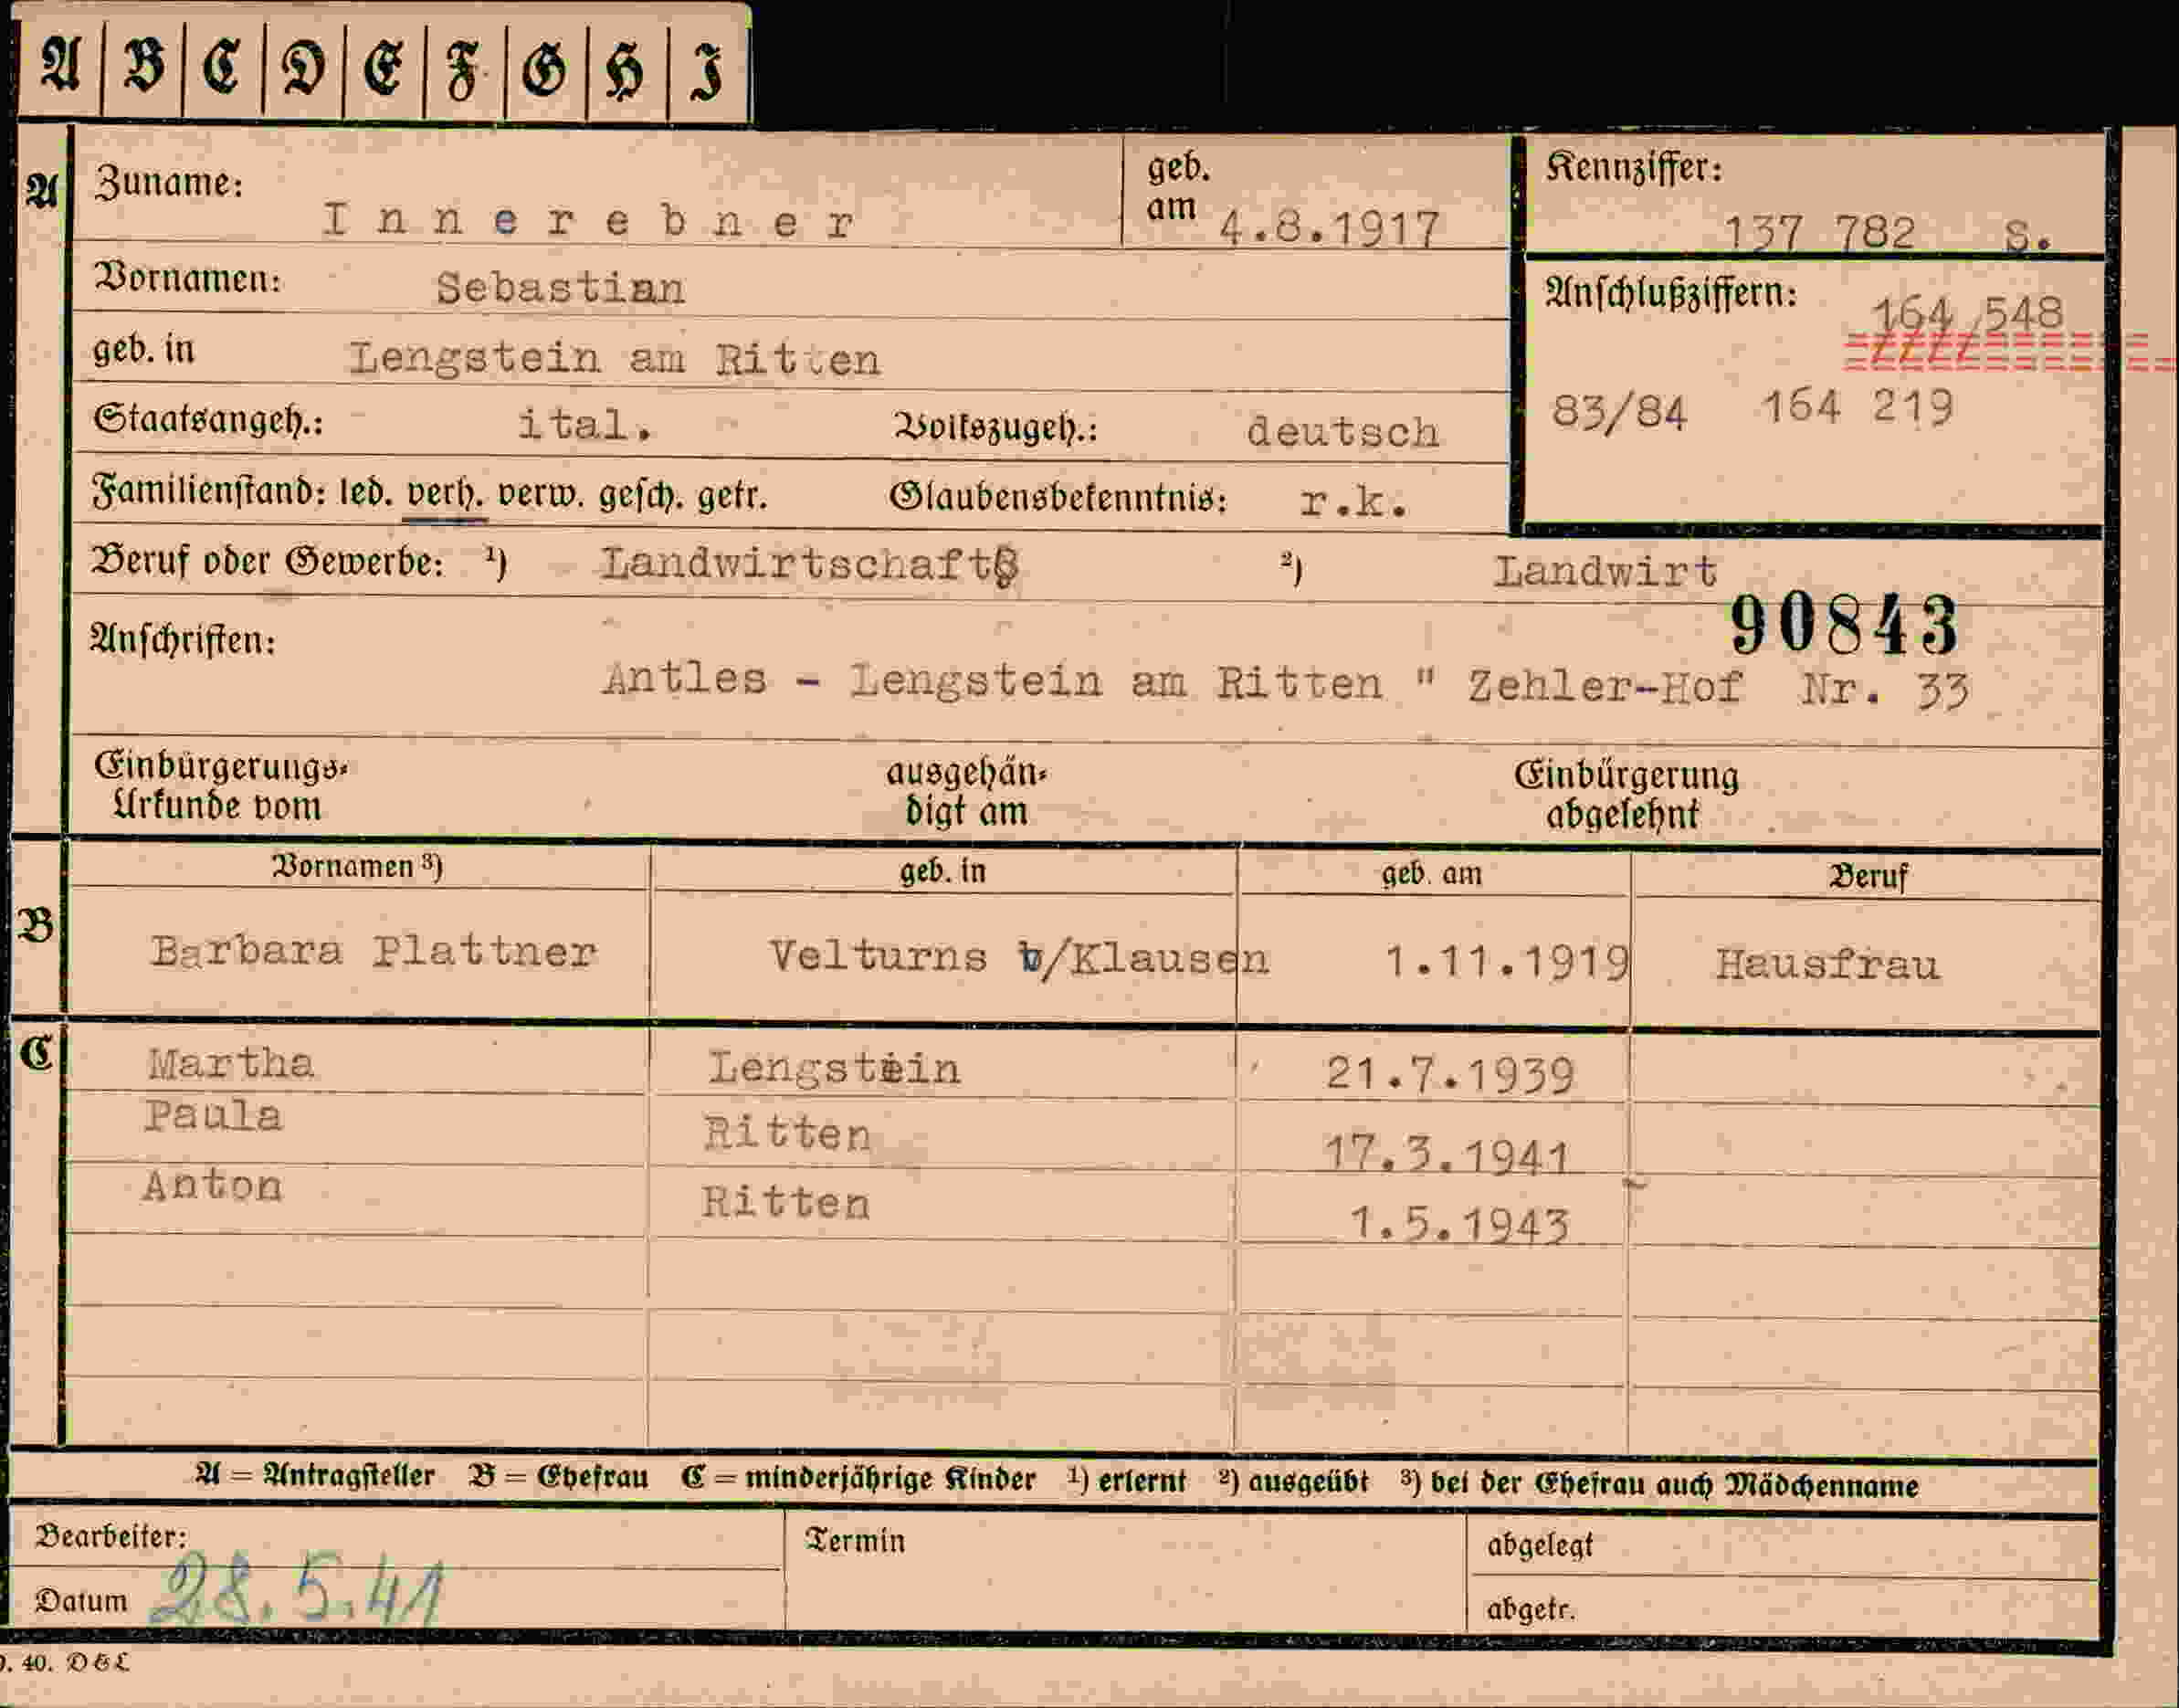 A B C D E F G H I
A Zuname: Innerebner geb. am 4.8.1917 Kennziffer: 137 782 S.
Vornamen: Sebastian Anschlußziffern: 164 548
geb. in Lengstein am Ritten
83/84 164 219
Staatsangeh.: ital. Volkszugeh.: deutsch
Familienstand: led. verh. verw. gesch. getr. Glaubensbekenntnis: r.k.
Beruf oder Gewerbe: ¹) Landwirtschaft ²) Landwirt
90843
Anschriften:
Antles - Lengstein am Ritten " Zehler-Hof Nr. 33
Einbürgerungs- ausgehän- Einbürgerung
Urkunde vom digt am abgelehnt
Vornamen ³) geb. in geb. am Beruf
B Barbara Plattner Velturns b/Klausen 1.11.1919 Hausfrau
C Martha Lengstein 21.7.1939
Paula Ritten 17.3.1941
Anton Ritten 1.5.1943
A = Antragsteller B = Ehefrau C = minderjährige Kinder ¹) erlernt ²) ausgeübt ³) bei der Ehefrau auch Mädchenname
Bearbeiter: Termin abgelegt
Datum 28.5.41 abgetr.
40. D&L